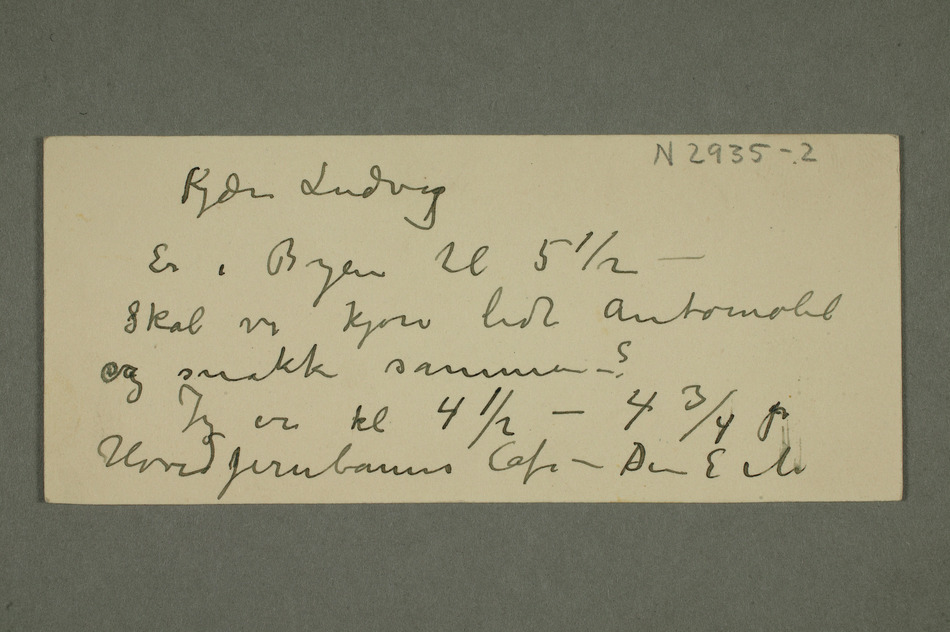 N 2935-.2
Kjære Ludvig
Er i Byen til 5 1/2 —
Skal vi kjøre lidt Automobil
og snakke sammen — ?
Jeg er kl 4 1/2 — 4 3/4 på
Hovedjernbanens Cafe — Din E M